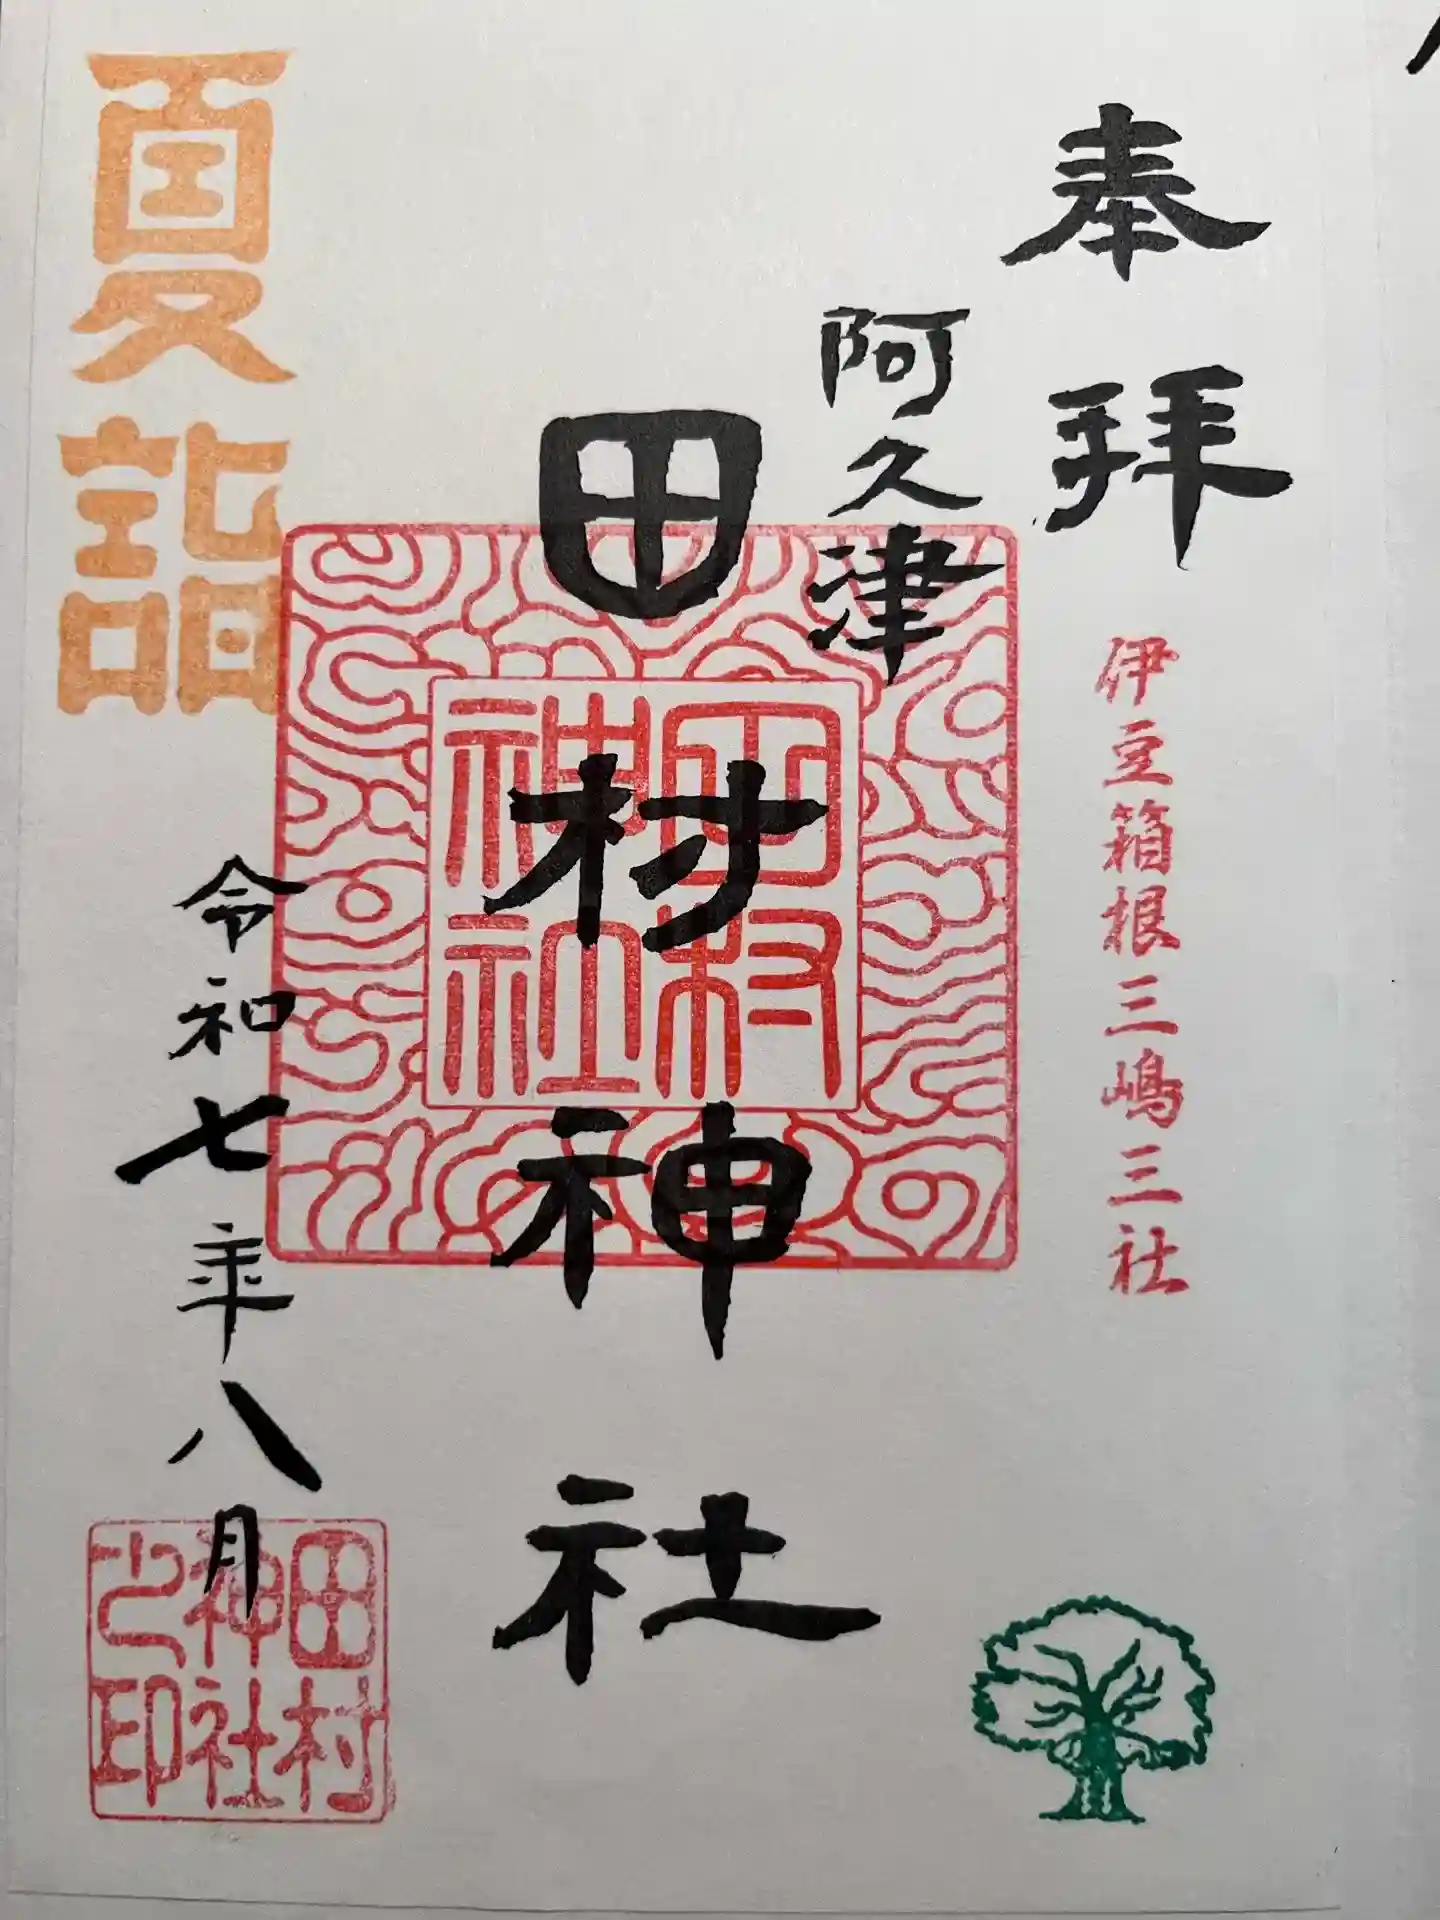 奉拝
伊豆箱根三嶋三社
阿久津
田村神社
田村
神社
夏詣
令和七年八月
田村
神社
之印